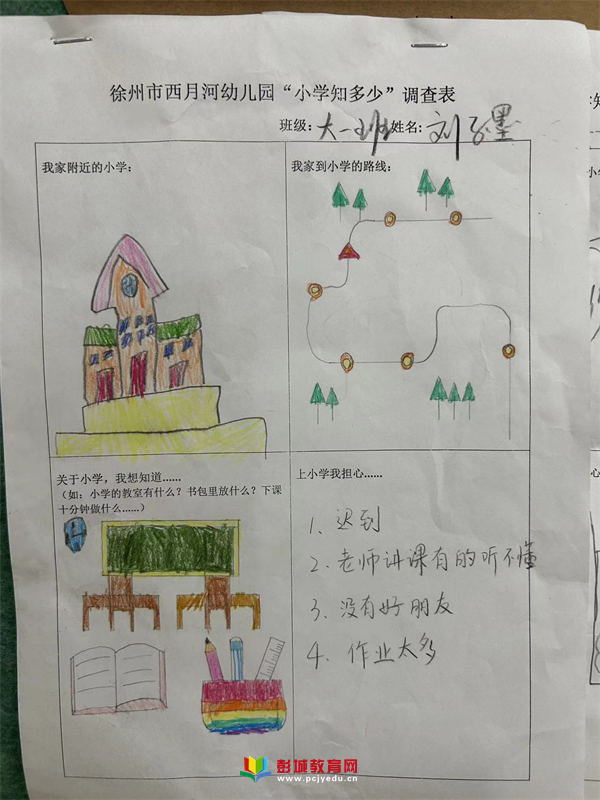 徐州市西月河幼儿园“小学知多少”调查表
班级：大一班姓名：刘子墨
我家附近的小学：
我家到小学的路线：
关于小学，我想知道……
（如：小学的教室有什么？书包里放什么？下课
十分钟做什么……）
上小学我担心……
1、迟到
2、老师讲课有的听不懂
3、没有好朋友
4、作业太多
彭城教育网
www.pcjyedu.cn